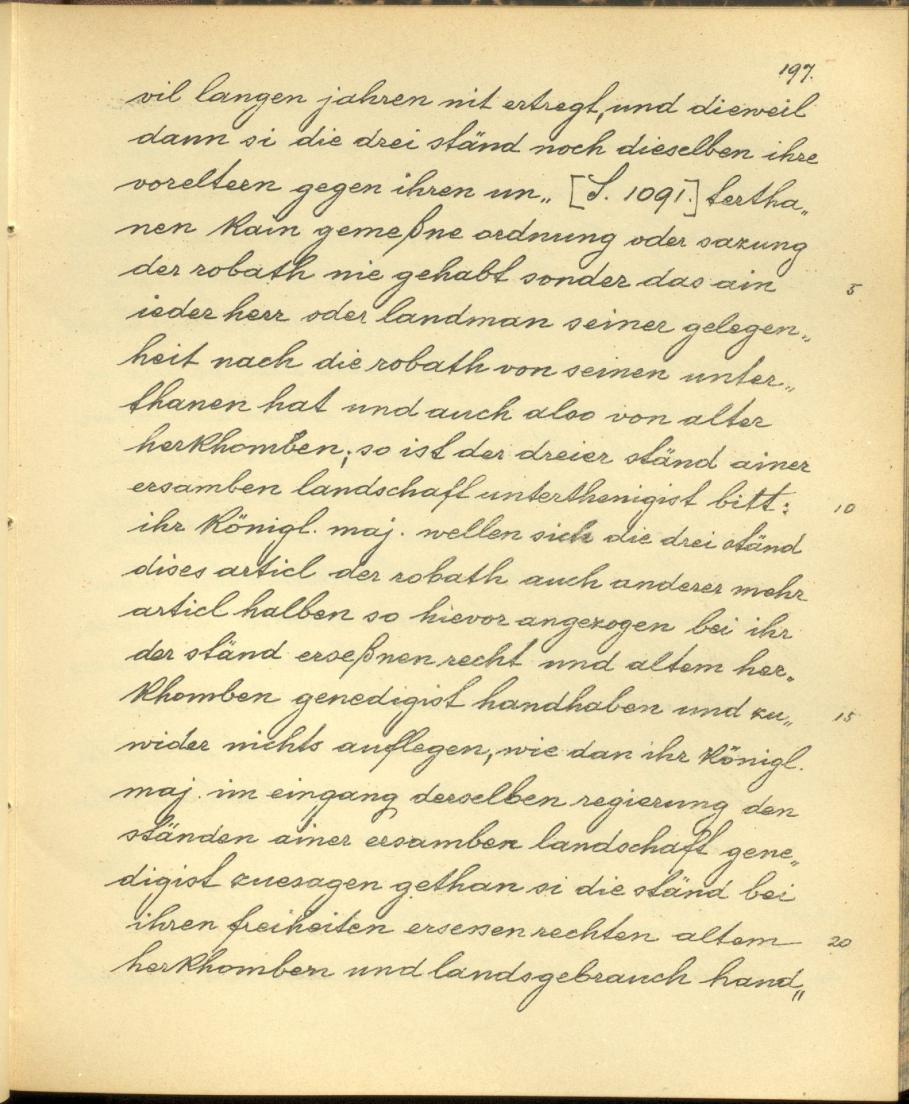 197.
vil langen jahren nit ertregt, und dieweil
dann si die drei ständ noch dieselben ihre
voreltern gegen ihren un„ [S. 1091.] tertha„
nen kain gemeßne ordnung oder sazung
der robath nie gehabt sonder das ain 5
ieder herr oder landman seiner gelegen„
heit nach die robath von seinen unter„
thanen hat und auch also von alter
herkhomben; so ist der dreier ständ ainer
ersamben landschaft unterthenigist bitt: 10
ihr königl. maj. wellen sich die drei ständ
dises articl der robath auch anderer mehr
articl halben so hievor angezogen bei ihr
der ständ erseßnen recht und altem her„
khomben genedigist handhaben und zu„ 15
wider nichts auflegen, wie dan ihr königl.
maj. im eingang derselben regierung den
ständen ainer ersamben landschaft gene„
digist zuesagen gethan si die ständ bei
ihren freiheiten ersessen rechten altem 20
herkhombern und landsgebrauch hand„